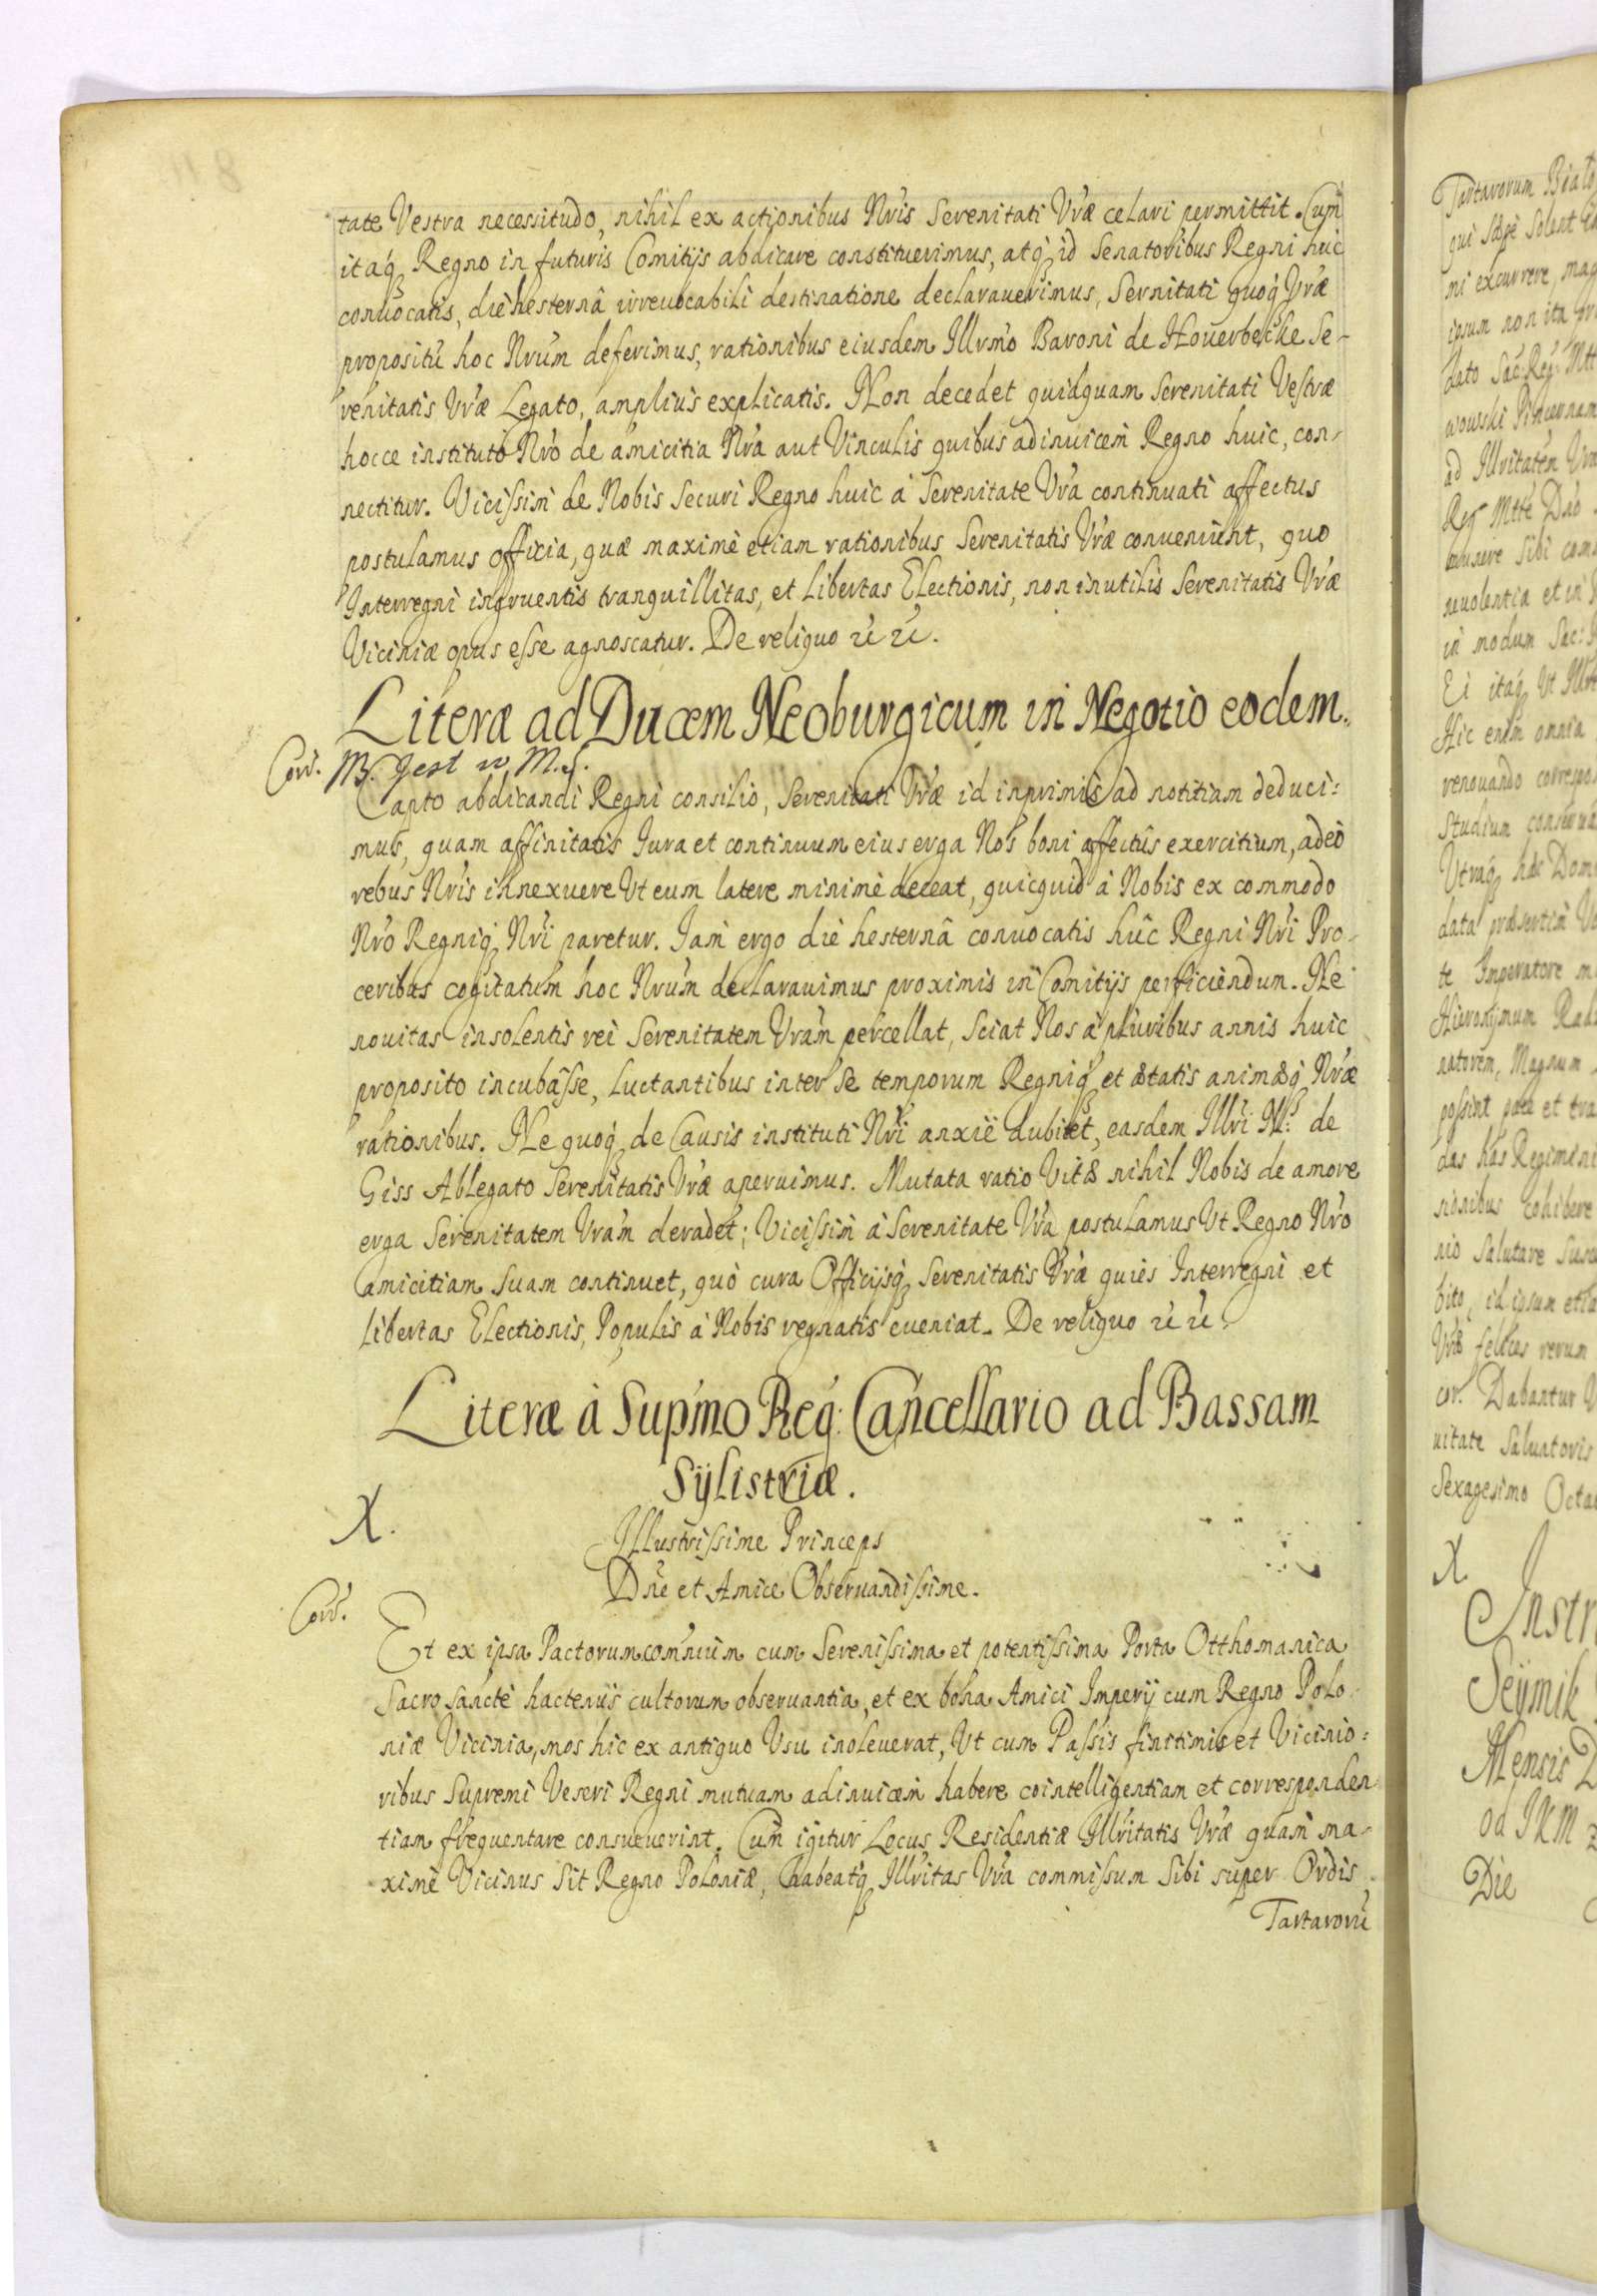 tate Vestra necessitudo, nihil ex actionibus Nris Serenitati Vræ celari permittit. Cum
itaq Regno in futuris Comitijs abdicare constituerimus, atq id Senatoribus Regni huic
conuocatis, die hesternâ irreuocabili destinatione declarauerimus, Sernitati quoq Vræ
propositu hoc Nrum deferimus, rationibus eiusdem Illrmo Baroni de Houerbecke Se-
renitatis Vræ Legato, amplius explicatis. Non decedet quidquam Serenitati Vestræ
hocce instituto Nro de amicitia Nra aut Vinculis quibus adinuicem Regno huic, con-
nectitur. Vicissim de Nobis Securi Regno huic à Serenitate Vra continuati affectus
postulamus officia, quæ maximè etiam rationibus Serenitatis Vræ conueniunt, quo
Interregni ingruentis tranquillitas, et Libertas Electionis, non inutilis Serenitatis Vræ
Viciniæ opus esse agnoscatur. De reliquo
Literæ ad Ducem Neoburgicum in Negotio eodem.
Corr. NB. Jest w M.S.
Capto abdicandi Regni consilio, Serenitati Vræ id inprimis ad notitiam deduci:
mus, quam affinitatis Iura et continuum eius erga Nos boni affectûs exercitium, adeò
rebus Nris innexuere Vt eum latere minimè deceat, quicquid à Nobis ex commodo
Nro Regniq Nri paretur. Iam ergo die hesternâ conuocatis hûc Regni Nri Pro-
ceribus cogitatum hoc Nrum declarauimus proximis in Comitijs perficiendum. Ne
nouitas insolentis rei Serenitatem Vram percellat, Sciat Nos à pluribus annis huic
proposito incubasse, Luctantibus inter Se temporum Regniq et ætatis animæq Nræ
rationibus. Ne quoq de Causis instituti Nri anxiè dubitet, easdem Illri de
Giss Ablegato Serenitatis Vræ aperuimus. Mutata ratio Vitæ nihil Nobis de amore
erga Serenitatem Vram deradet; Vicissim à Serenitate Vra postulamus Vt Regno Nro
amicitiam Suam continuet, quò cura Officijsq Serenitatis Vræ quies Interregni et
Libertas Electionis, Populis à Nobis regnatis eueniat. De reliquo
Literæ à Supmo Reg: Cancellario ad Bassam
Sylistriæ.
X.
Illustrissime Princeps
Dne et Amice Obseruandissime.
Corr.
Et ex ipsa Pactorum omnium cum Serenissima et potentissima Porta Otthomanica
Sacro Sanctè hactenus cultorum obseruantia, et ex bona Amici Imperij cum Regno Polo-
niæ Vicinia, mos hic ex antiquo Vsu inoleuerat, Vt cum Passis finitimis et Vicinio:
ribus Supremi Veseri Regni mutuam adinuicem habere cointelligentiam et corresponden
tiam frequentare consueuerint. Cum igitur Locus Residentiæ Illritatis Vræ quam ma-
ximè Vicinus Sit Regno Poloniæ, habeatq Illritas Vra commissum Sibi super Ordis
Tartaroru
Tartarorum
qui sæpè solent
ni excurrere,
ipsum non ita
dato Sac: Reg: Mtt
wowski Pincernam
ad Illritatem
Reg Mtte
neuolentia et in
in modum Sac:
Ei itaq Vt
Hic enim omnia
renouando
Studium
Vtraq hæc
data præsertim
te Imperatore
Hieronymum
natorem, Magnum
possint pace et
das has
sionibus cohibere
nio Salutare
bito, id ipsum
Vræ felices rerum
or. Dabantur
uitate Saluatoris
Sexagesimo
X
Seymik
Mensis
od JKM
Die